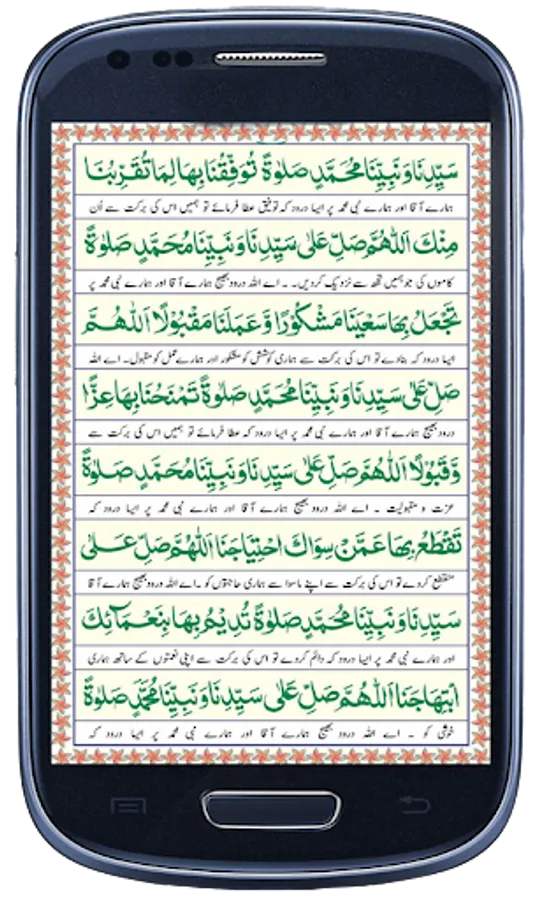 سَيِّدِنَا وَنَبِيِّنَا مُحَمَّدٍ صَلٰوةً تُوَفِّقُنَا بِهَا لِمَا تُقَرِّبُنَا
ہمارے آقا اور ہمارے نبی محمد پر ایسا درود کہ توفیق عطا فرمائے تو ہمیں اس کی برکت سے اُن
مِنْكَ اَللّٰهُمَّ صَلِّ عَلٰى سَيِّدِنَا وَنَبِيِّنَا مُحَمَّدٍ صَلٰوةً
کاموں کی جو ہمیں تجھ سے نزدیک کردیں۔ ۔ اے اللہ درود بھیج ہمارے آقا اور ہمارے نبی محمد پر
تَجْعَلُ بِهَا سَعْيَنَا مَشْكُوْرًا وَّعَمَلَنَا مَقْبُوْلًا اَللّٰهُمَّ
ایسا درود کہ بنادے تو اس کی برکت سے ہماری کوشش کو مشکور اور ہمارے عمل کو مقبول۔ اے اللہ
صَلِّ عَلٰى سَيِّدِنَا وَنَبِيِّنَا مُحَمَّدٍ صَلٰوةً تَمْنَحُنَا بِهَا عِزًّا
درود بھیج ہمارے آقا اور ہمارے نبی محمد پر ایسا درود کہ عطا فرمائے تو ہمیں اس کی برکت سے
وَّقَبُوْلًا اَللّٰهُمَّ صَلِّ عَلٰى سَيِّدِنَا وَنَبِيِّنَا مُحَمَّدٍ صَلٰوةً
عزت و مقبولیت ۔ اے اللہ درود بھیج ہمارے آقا اور ہمارے نبی محمد پر ایسا درود کہ
تَقْطَعُ بِهَا عَمَّنْ سِوَاكَ احْتِيَاجَنَا اَللّٰهُمَّ صَلِّ عَلٰى
منقطع کردے تو اس کی برکت سے اپنے ماسوا سے ہماری حاجتوں کو ۔ اے اللہ درود بھیج ہمارے آقا
سَيِّدِنَا وَنَبِيِّنَا مُحَمَّدٍ صَلٰوةً تُدِيْمُ بِهَا بِنَعْمَآئِكَ
اور ہمارے نبی محمد پر ایسا درود کہ دائم کردے تو اس کی برکت سے اپنی نعمتوں کے ساتھ ہماری
ابْتِهَاجَنَا اَللّٰهُمَّ صَلِّ عَلٰى سَيِّدِنَا وَنَبِيِّنَا مُحَمَّدٍ صَلٰوةً
خوشی کو ۔ اے اللہ درود بھیج ہمارے آقا اور ہمارے نبی محمد پر ایسا درود کہ